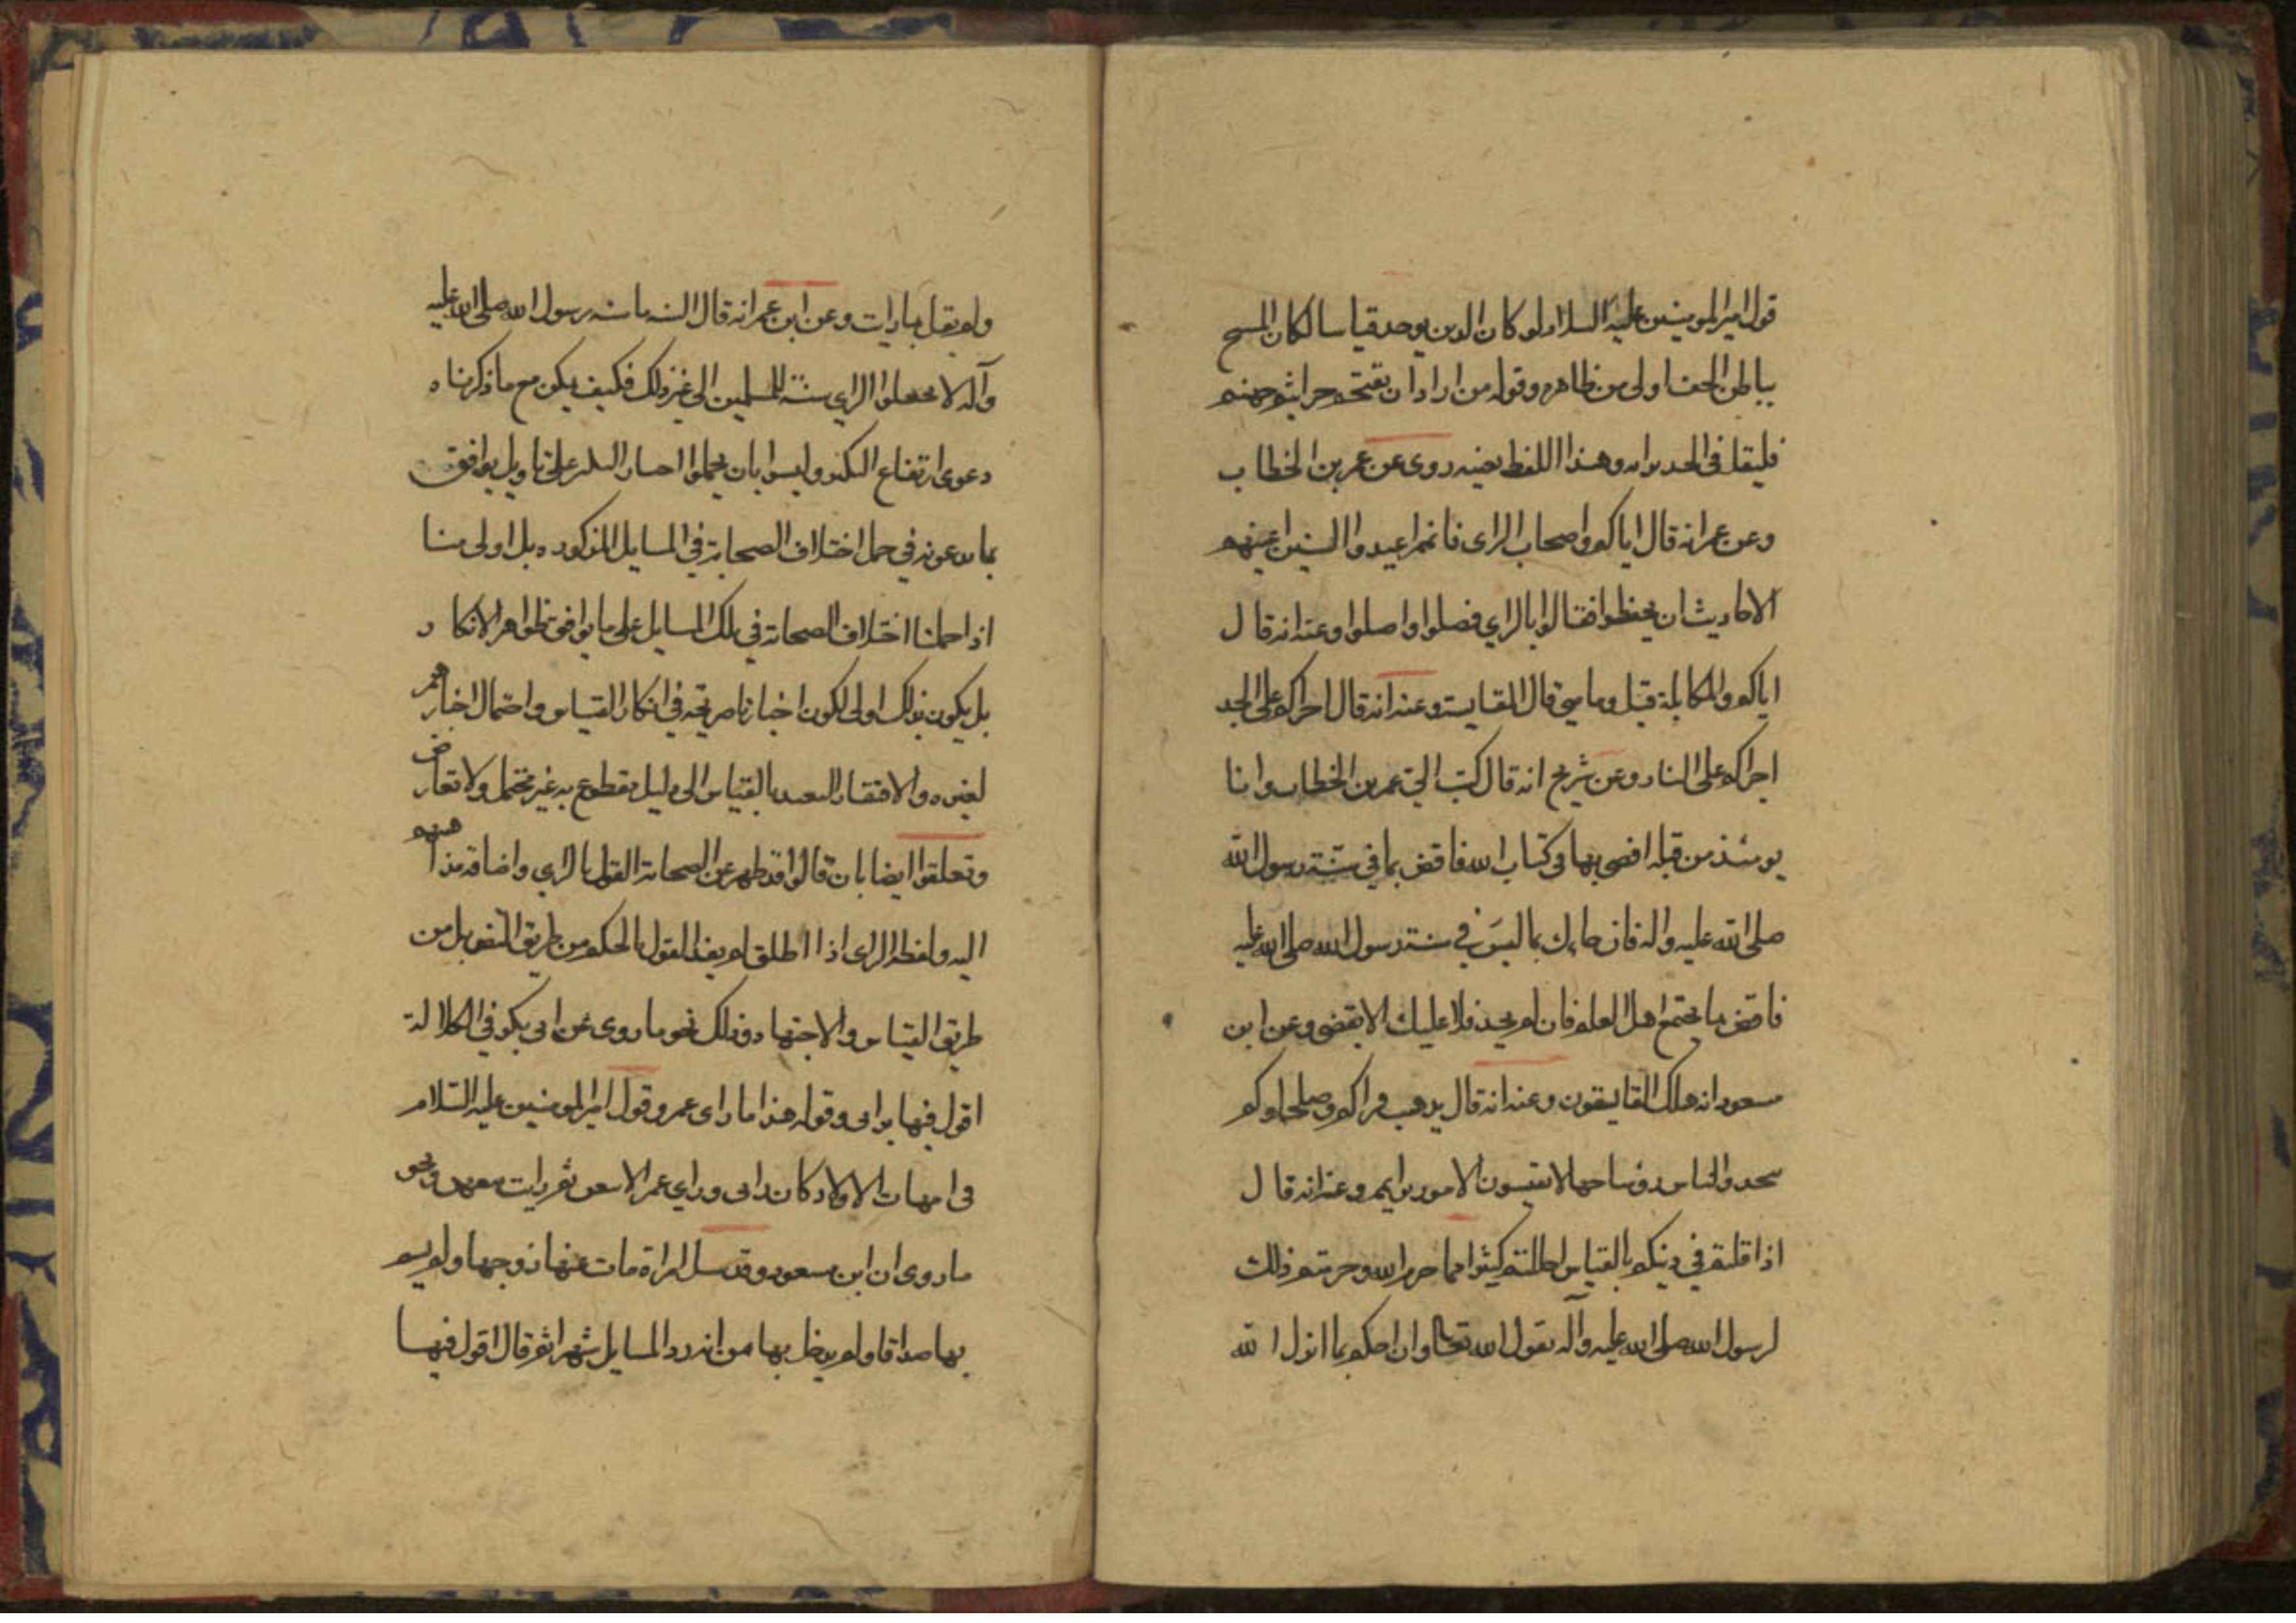 قول امير المومنين عليه السلام لو كان الدين يوخذ قياسا لكان المسح
بباطن الخف اولى من ظاهره وقوله من اراد ان يقتحم جراثيم جهنم
فليقل في الجد برايه وهذا اللفظ بعينه روى عن عمر بن الخطاب
وعن عمر انه قال اياكم واصحاب الراى فانهم اعداء السنن اعيتهم
الاحاديث ان يحفظوا فقالوا بالراي فضلوا واضلوا وعنه انه قال
اياكم والمكايلة قيل وما هي قال المقايسة وعنه انه قال اجراكم على الجد
اجراكم على النار وعن شريح انه قال كتب الي عمر بن الخطاب وانا
يومئذ من قبله اقض بما في كتاب الله فاقض بما في سنة رسول الله
صلى الله عليه واله فان جاءك بما ليس في سنة رسول الله صلى الله عليه
فاقض بما يجتمع اهل العلم فان لم يجد فلا عليك الا يقضى وعن ابن
مسعود انه هلك القايسون وعنه انه قال يذهب قراكم وصلحاوكم
يتخذ والناس روسا جهالا يقيسون الامور برايهم وعنه انه قال
اذا قلتم في دينكم بالقياس احللتم كثيرا مما حرم الله وحرمتم ذلك
لرسول الله صلى الله عليه وآله بقول الله تعالى وان احكم بما انزل الله
ولم يقل بما رات وعن ابن عمر انه قال السنه ما سنه رسول الله صلى الله عليه
وآله لا تجعلوا الراي سنة للمسلمين الى غير ذلك فكيف يمكن مع ما ذكرناه
دعوى ارتفاع النكير وليسوا بان يحملوا اخبار السلف على تاويل يوافق
بما يدعونه في حمل اختلاف الصحابة في المسايل المذكوره بل اولى منا
اذا حملنا اختلاف الصحابة في تلك المسايل على ما يوافق ظواهر الانكار
بل يكون بذلك اولى لكون اخبارنا صريحة في انكار القياس واحتمال اخبارهم
لغيره والافتقار التعبد بالقياس الى دليل مقطوع به غير محتمل ولا تعارض
وتعلقوا ايضا بان قالوا قد ظهر عن الصحابة القول بالراي واضافة مذاهبهم
اليه ولفظ الراى اذا اطلق لم يفد القول بالحكم من طريق النص بل من
طريق القياس والاجتهاد وذلك نحو ما روى عن ابى بكر في الكلالة
اقول فيها برايى وقوله هذا ما راى عمر وقول امير المومنين عليه السلام
في امهات الاولاد كان رايى وراي عمر الا يبعن ثم رايت بيعهن ونحو
ما روى ان ابن مسعود وقد سئل امراة مات عنها زوجها ولم يسم
بها صداقا ولم يدخل بها من انه ردد المسايل شهرا ثم قال اقول فيها